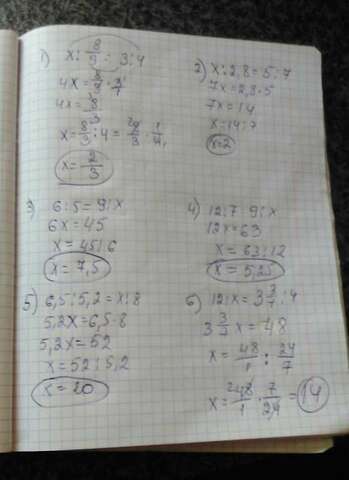 1) x : 8/9 = 3 : 4
4x = 8/9 · 3/1
4x = 8/3
x = 8/3 : 4 = 8/3 · 1/4
x = 2/3
2) x : 2,8 = 5 : 7
7x = 2,8 · 5
7x = 14
x = 14 : 7
x = 2
3) 6 : 5 = 9 : x
6x = 45
x = 45 : 6
x = 7,5
4) 12 : 7 9 : x
12x = 63
x = 63 : 12
x = 5,25
5) 6,5 : 5,2 = x : 8
5,2x = 6,5 · 8
5,2x = 52
x = 52 : 5,2
x = 20
6) 12 : x = 3 3/7 : 4
3 3/7 x = 48
x = 48/1 : 24/7
x = 48/1 · 7/24 = 14